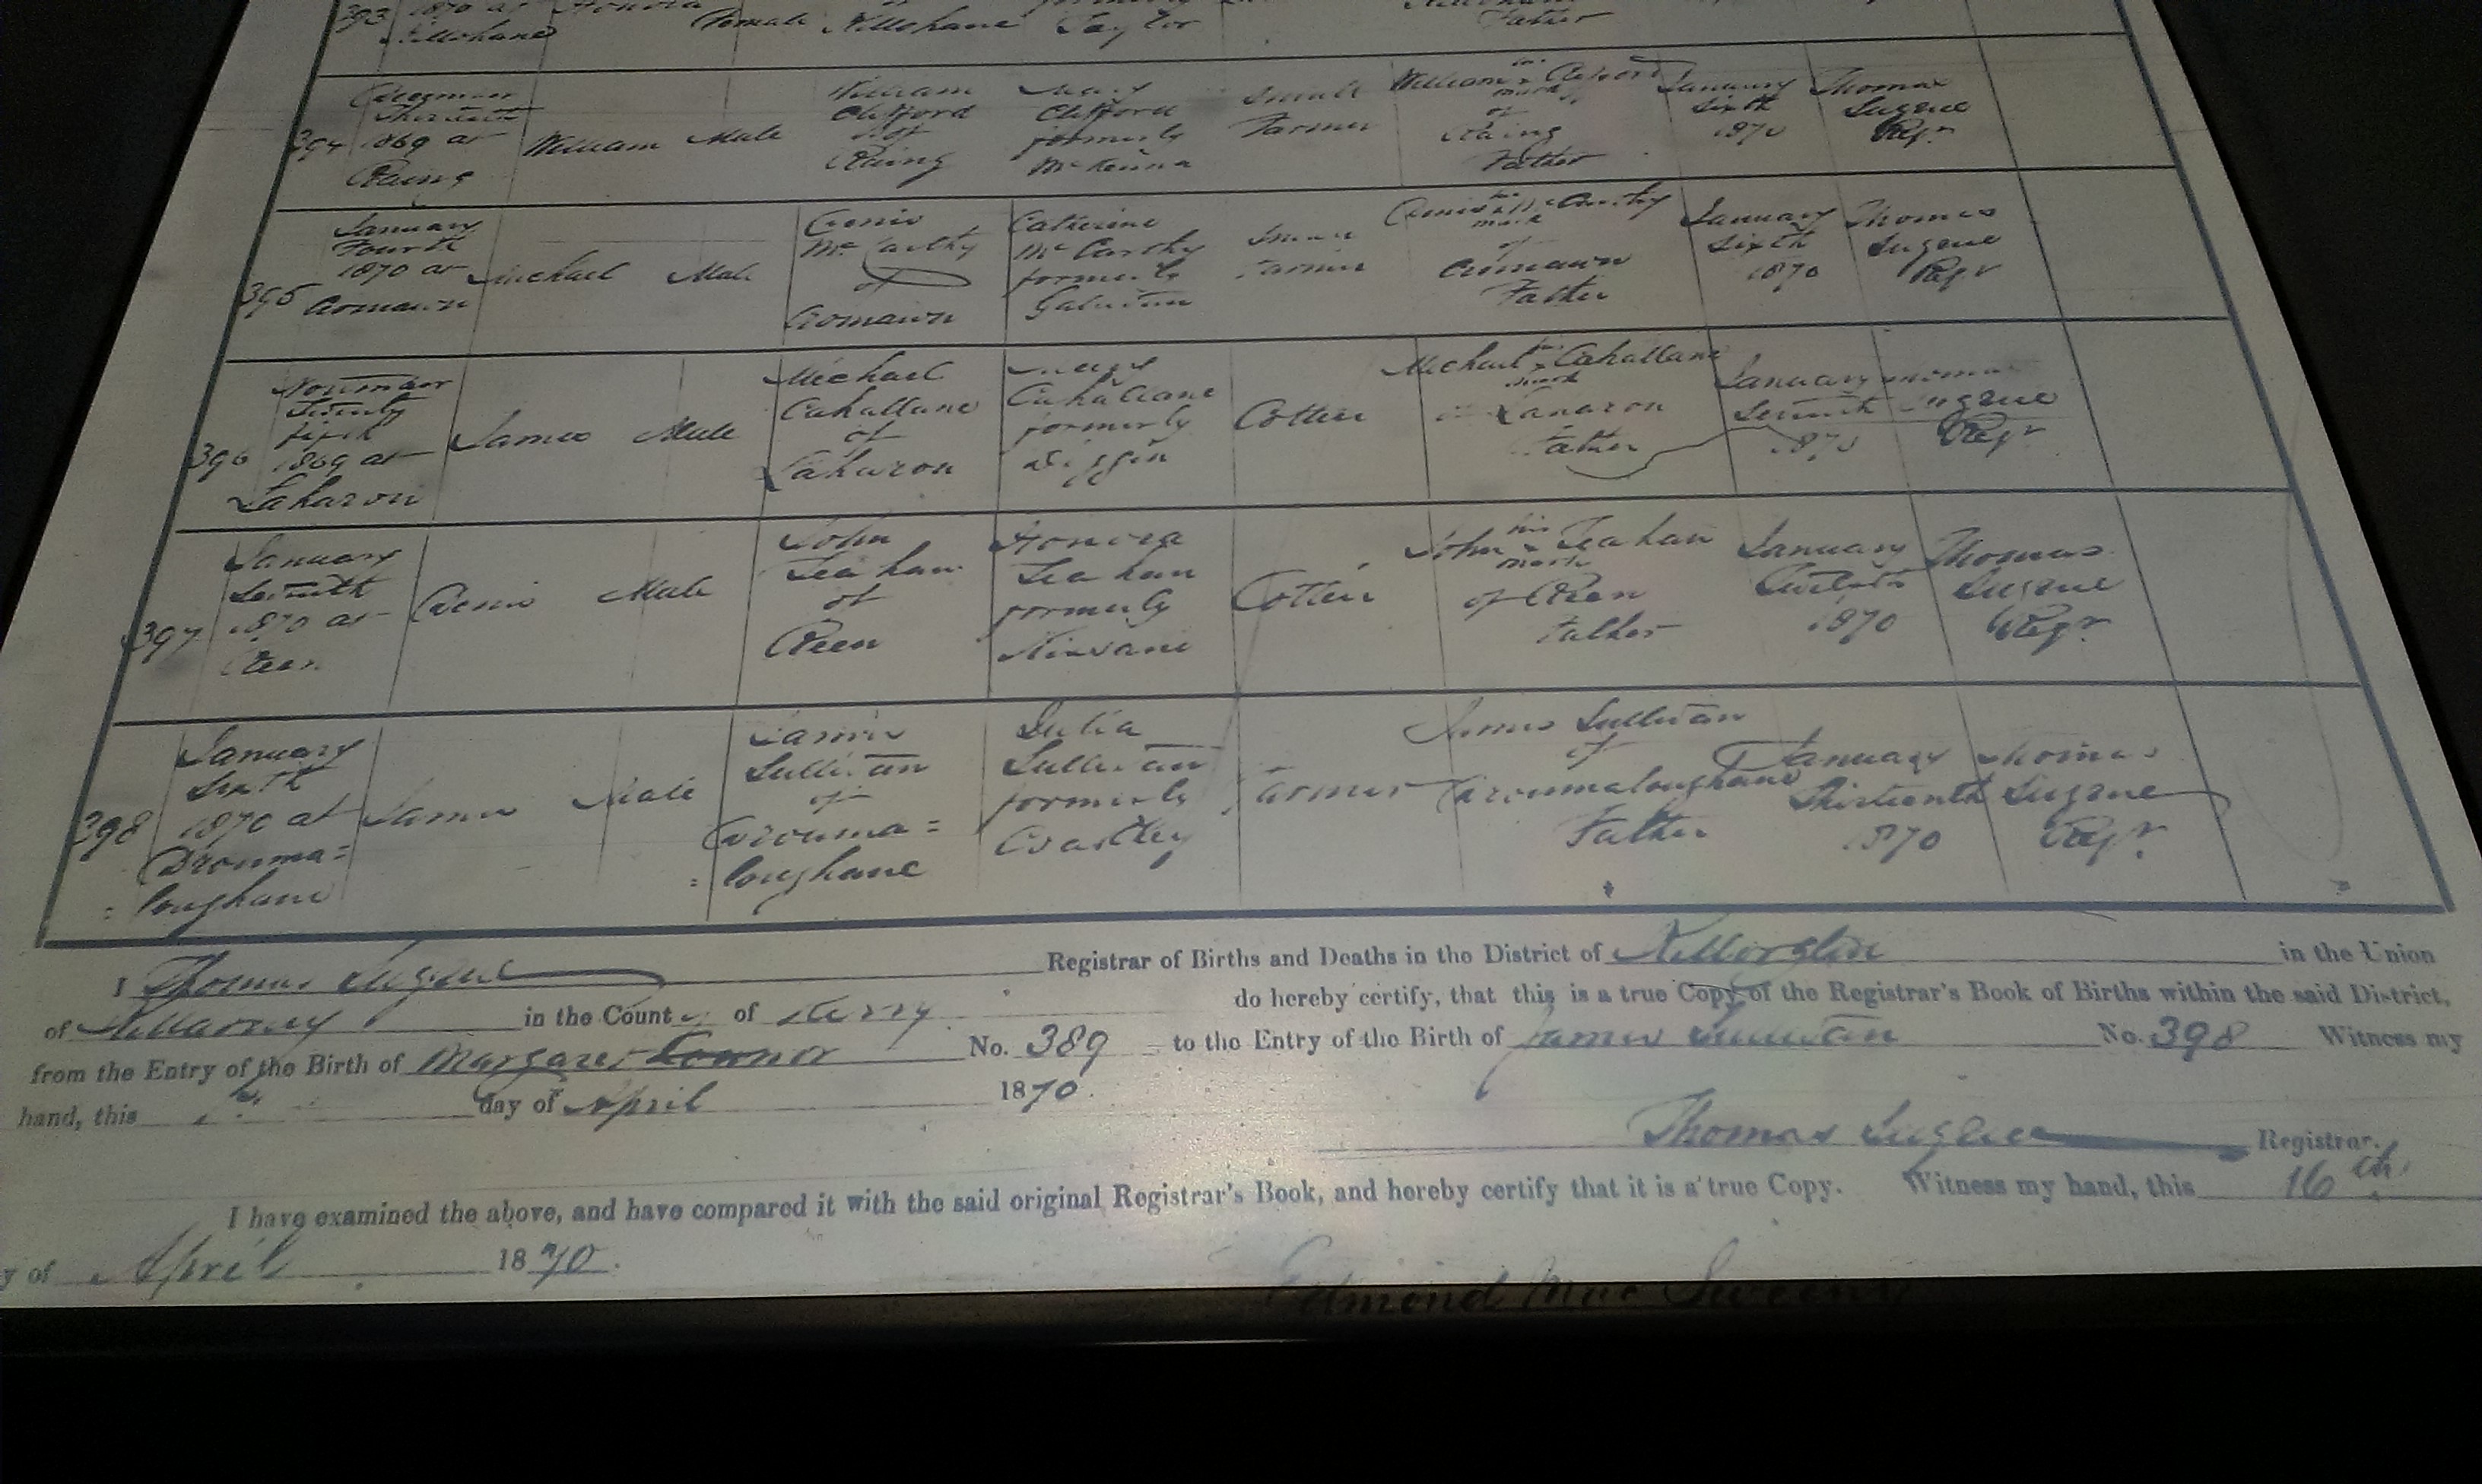 393 1870 at Honora Female Killohane formerly Taylor Father
Killohane
394 December Thirtieth 1869 at Raing William Male William Clifford of Raing Mary Clifford formerly McKenna Small Farmer William his x mark Clifford of Raing Father January Sixth 1870 Thomas Eugene Regr
395 January Fourth 1870 at Michael Male Denis McCarthy of Catherine McCarthy formerly Small Farmer Denis his x mark McCarthy of Father January Sixth 1870 Thomas Eugene Regr
396 November Twenty fifth 1869 at Laharon James Male Michael Cahallane of Laharon Cahallane formerly Diggin Cottier Michael his x mark Cahallane Father January Seventh 1870 Thomas Eugene Regr
397 January Seventh 1870 at Reen Denis Male John Teahan of Reen Honora Teahan formerly Cottier John his x mark Teahan of Reen Father January Twelfth 1870 Thomas Eugene Regr
398 January Sixth 1870 at Drouma= =loughane James Male James Sullivan of Drouma= =loughane Julia Sullivan formerly Farmer James Sullivan of Droumaloughane Father January Thirteenth 1870 Thomas Eugene Regr
I Thomas Eugene Registrar of Births and Deaths in the District of Killorglin in the Union
of Killarney in the County of Kerry do hereby certify, that this is a true Copy of the Registrar's Book of Births within the said District,
from the Entry of the Birth of Margaret Connor No. 389 to the Entry of the Birth of James Sullivan No. 398 Witness my
hand, this day of April 1870.
Thomas Eugene Registrar.
I have examined the above, and have compared it with the said original Registrar's Book, and hereby certify that it is a true Copy. Witness my hand, this 16th
y of April 1870.
Edmond Mac Sweeny